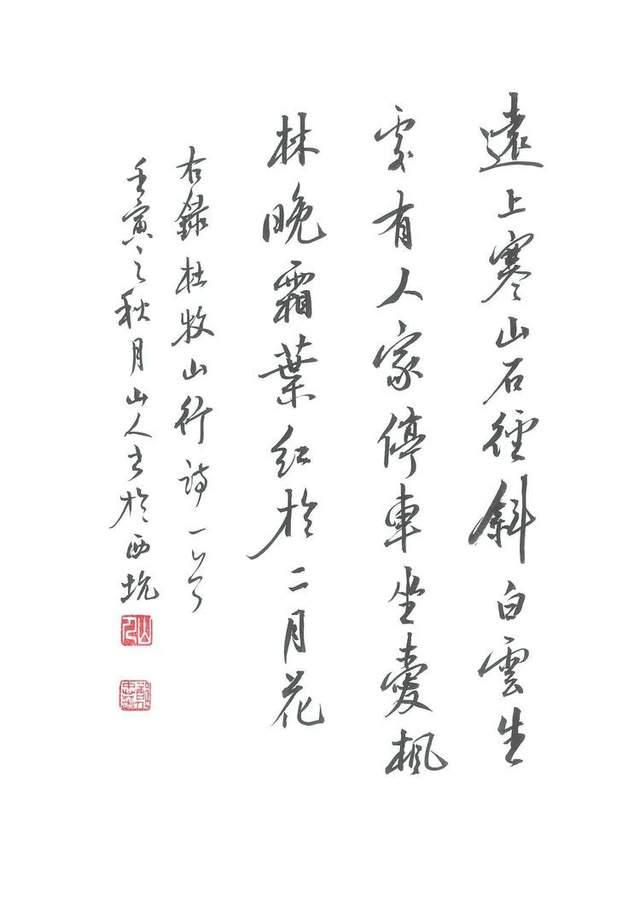 遠上寒山石徑斜白雲生
處有人家停車坐愛楓
林晚霜葉紅於二月花
右錄杜牧山行詩一首
壬寅之秋月山人書於西坑
山人